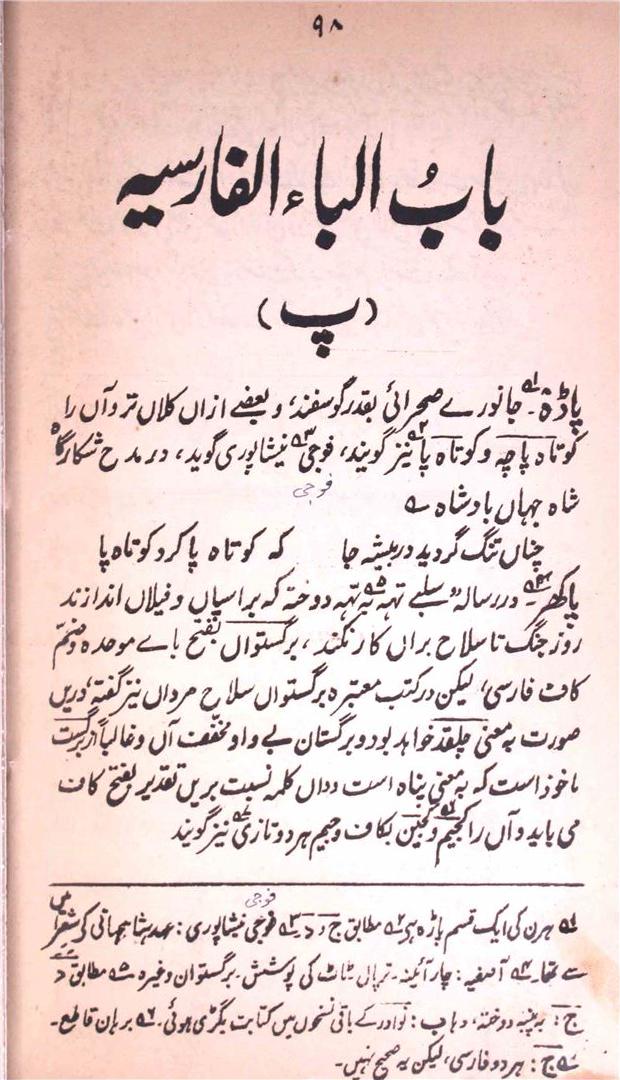 ۹۸
بابُ الباء الفارسیہ
(پ)
پاڑہ۔ ۱ جانورے صحرائی بقدر گوسفند، و بعضے ازاں کلاں تر و آں را
کوتاہ پاچہ و کوتاہ پا ۲ نیز گویند، فوجی ۳ نیشاپوری گوید، در مدح شکارگاہ
فوجی
شاہ جہاں بادشاہ ؎
چناں تنگ گردید در بیشہ جا کہ کوتاہ پا کرد کوتاہ پا
پاکھر۔ ۴ در رسالہ "سلبے تہہ بہ تہہ ۵ دوختہ کہ بر اسپاں و فیلاں اندازند
روز جنگ تا سلاح براں کار نکند، برگستواں بفتح باے موحدہ و ضمّ
کاف فارسی، لیکن در کتب معتبرہ برگستواں سلاحِ مرداں نیز گفتہ، دریں
صورت بہ معنی چلقد خواہد بود و برگستان بے واو مخفف آں و غالباً از برگست
ماخوذ است کہ بہ معنی پناہ است و داں کلمہ نسبت بریں تقدیر بفتح کاف
می باید و آں را کجیم ۶ و کجین بکاف و جیم ہر دو تازی ۷ نیز گویند
فوجی
۱ ہرن کی ایک قسم پاڑہ ہی ۲ مطابق ج و د۔ ۳ فوجی نیشاپوری: عہد شاہجہانی کے شعرا میں
سے تھا۔ ۴ آصفیہ: چار آئینہ۔ ترپال ٹاٹ کی پوشش۔ برگستوان وغیرہ ۵ مطابق د
ج: بہ پنبہ دوختہ، د ہا ب: نوادر کے باقی نسخوں میں کتابت بگڑی ہوئی۔ ۶ برہان قاطع۔
۷ ج: ہر دو فارسی، لیکن یہ صحیح نہیں۔